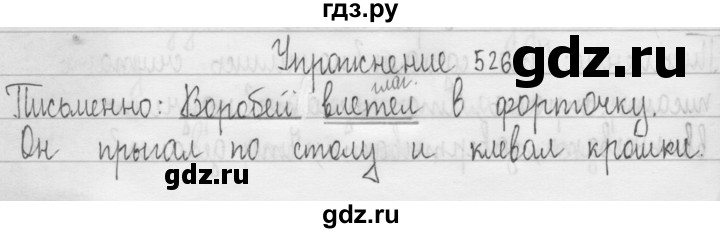 гдз.ру
Упражнение 526
глаг.
Письменно: Воробей влетел в форточку.
Он прыгал по столу и клевал крошки.
gdz.ru
gdz.ru
gdz.ru